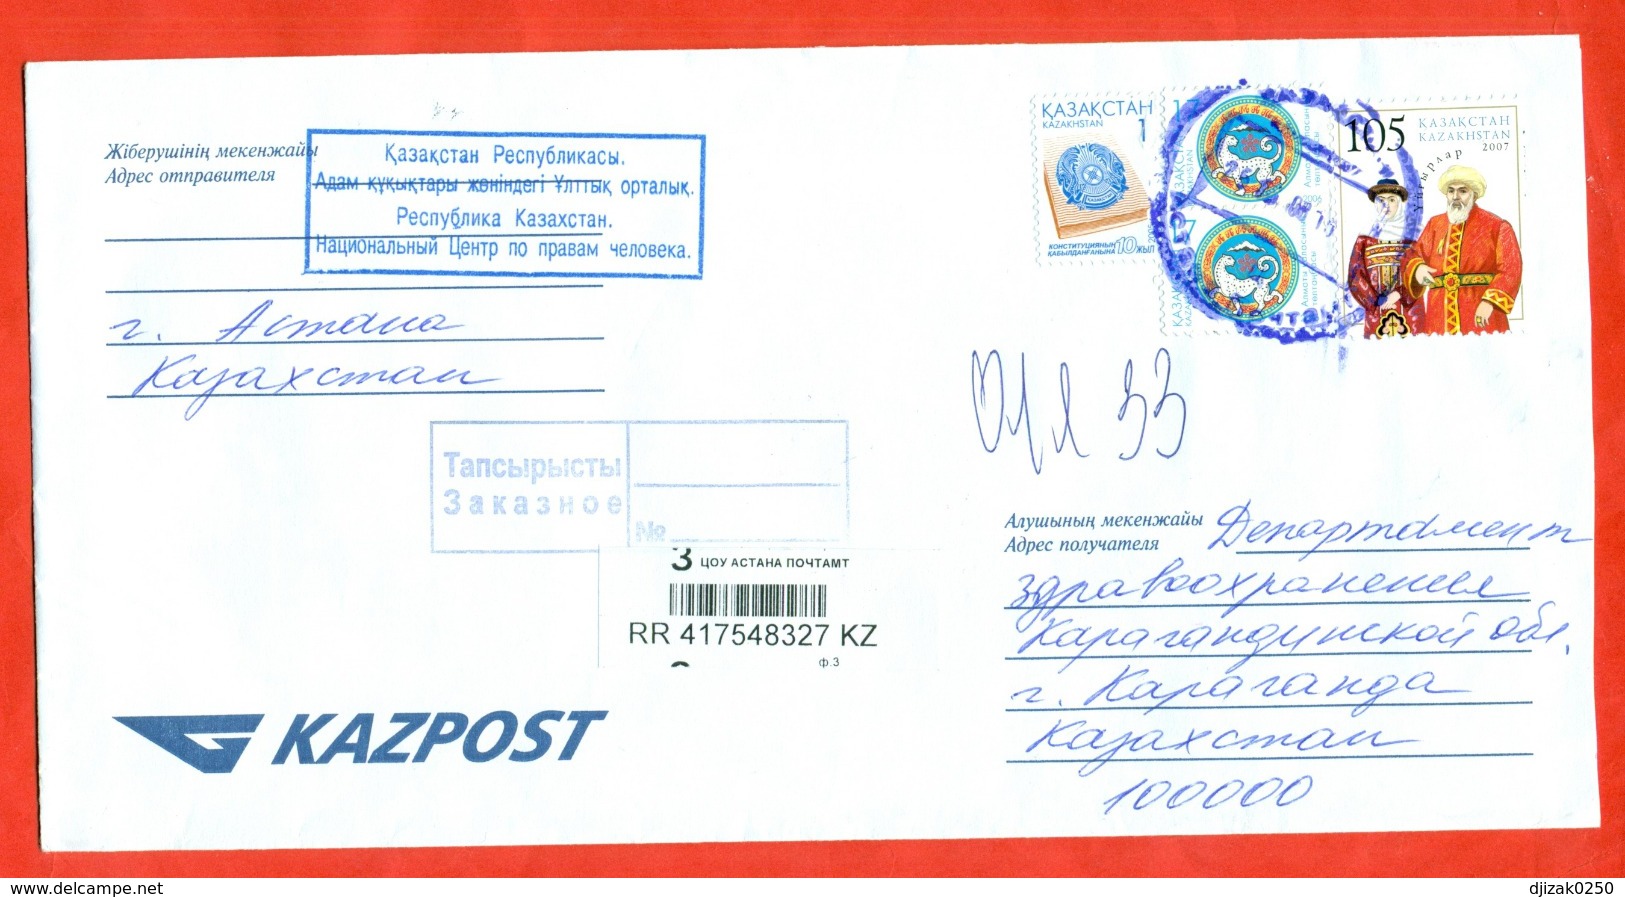 Жіберушінің мекенжайы
Адрес отправителя
Қазақстан Республикасы.
Адам құқықтары жөніндегі Ұлттық орталық.
Республика Казахстан.
Национальный Центр по правам человека.
г. Астана
Казахстан
ҚАЗАҚСТАН
KAZAKHSTAN
1
КОНСТИТУЦИЯНЫҢ
ҚАБЫЛДАНҒАНЫНА
10 ЖЫЛ
17
ҚАЗАҚСТАН
2006
17
ҚАЗАҚСТАН
105
ҚАЗАҚСТАН
KAZAKHSTAN
2007
Ұйғырлар
33
Тапсырысты
Заказное
№
З ЦОУ АСТАНА ПОЧТАМТ
RR 417548327 KZ
ф.3
KAZPOST
Алушының мекенжайы
Адрес получателя
Департамент
здравоохранения
Карагандинской обл.
г. Караганда
Казахстан
100000
www.delcampe.net
djizak0250